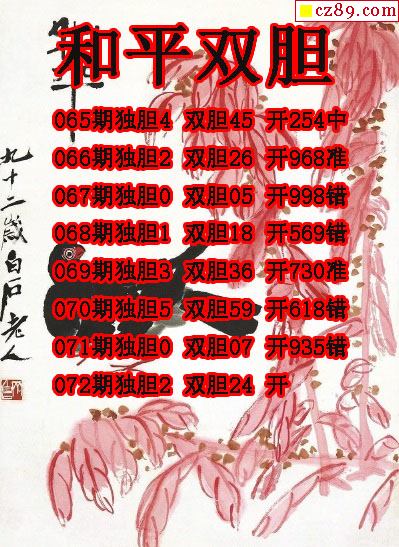 cz89.com
和平双胆
065期独胆4 双胆45 开254中
066期独胆2 双胆26 开968准
067期独胆0 双胆05 开998错
068期独胆1 双胆18 开569错
069期独胆3 双胆36 开730准
070期独胆5 双胆59 开618错
071期独胆0 双胆07 开935错
072期独胆2 双胆24 开
九十二岁白石老人